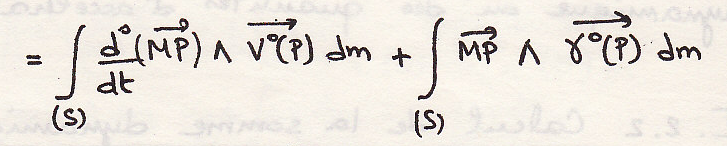 = ∫_(S) d°/dt (MP→) ∧ V°(P)→ dm + ∫_(S) MP→ ∧ γ°(P)→ dm